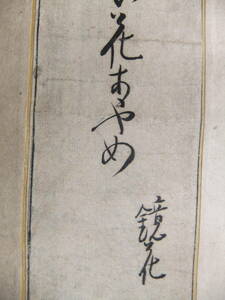 花あやめ
鏡花